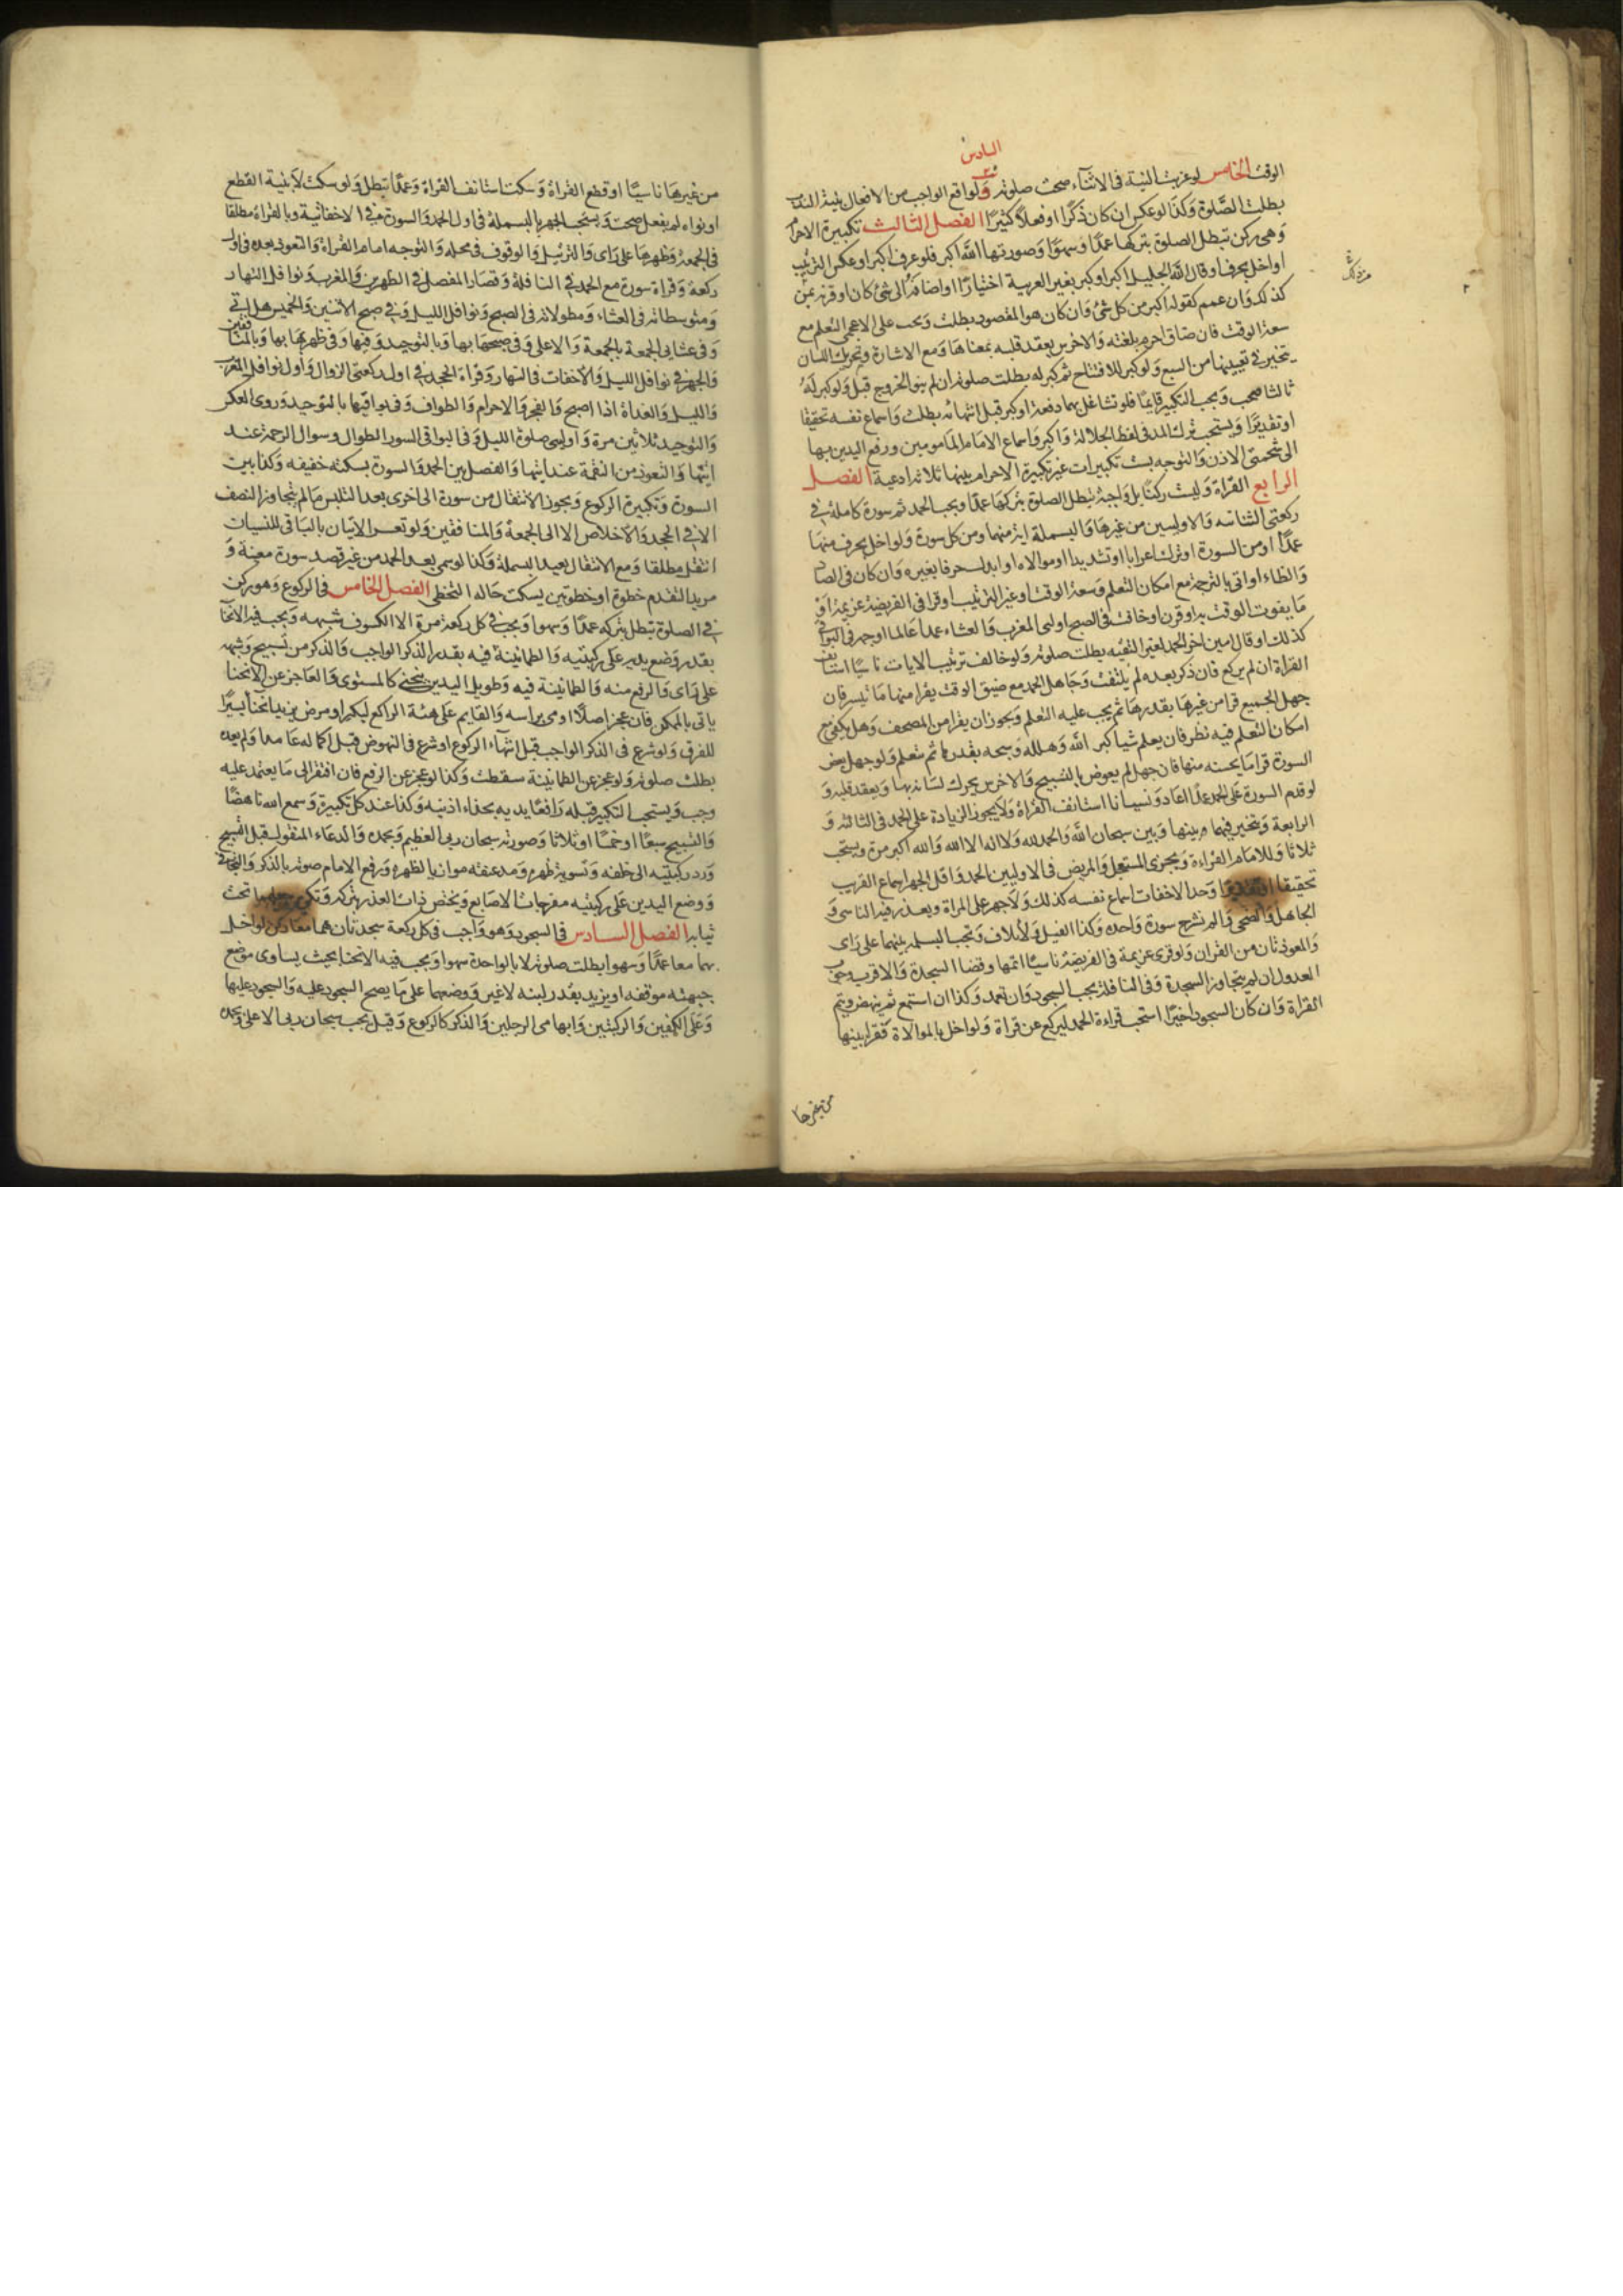 السادس
الوقت الخامس لو عزبت النية فى الاثناء صحت صلوته ولو اوقع الواجب من الافعال بنية الندب
بطلت الصلوة وكذا لو عكس ان كان ذكرا او فعلا كثيرا الفصل الثالث تكبيرة الاحرام
وهى ركن تبطل الصلوة بتركها عمدا وسهوا وصورتها الله اكبر فلو عرف اكبر او عكس الترتيب
او اخل بحرف او قال الله الجليل اكبر او كبر بغير العربية اختيارا او اضافه الى شئ كان او قرنه بمن
كذلك وان عمم كقوله اكبر من كل شئ وان كان هو المقصود بطلت ويجب على الاعجمى التعلم مع
سعة الوقت فان ضاق احرم بلغته والاخرس يعقد قلبه بمعناها ومع الاشارة وتحريك اللسان
يتخير فى تعيينها من السبع ولو كبر للافتتاح ثم كبر له بطلت صلوته ان لم ينو الخروج قبل ولو كبر له
ثالثا صحت ويجب التكبير قايما فلو تشاغل بهما دفعة او كبر قبل انتهائه بطلت واسماع نفسه تحقيقا
او تقديرا ويستحب ترك المد فى لفظ الجلالة واكبر واسماع الامام المامومين ورفع اليدين بها
الى شحمتى الاذن والتوجه بست تكبيرات غير تكبيرة الاحرام بينها ثلاثة ادعية الفصل
الرابع القراة وليست ركنا بل واجبة تبطل الصلوة بتركها عمدا ويجب الحمد ثم سورة كاملة فى
ركعتى الثنائيه والاوليين من غيرها والبسملة اية منها ومن كل سورة ولو اخل بحرف منها
عمدا او من السورة او ترك اعرابا او تشديدا او موالاه او ابدل حرفا بغيره وان كان فى الضاد
والظاء او اتى بالترجمة مع امكان التعلم وسعة الوقت او غير الترتيب او قرا فى الفريضة عزيمة او
ما يفوت الوقت به او قرن او خافت فى الصبح او اوليى المغرب والعشاء عمدا عالما او جهر فى البواقى
كذلك او قال امين اخر الحمد لغير التقيه بطلت صلوته ولو خالف ترتيب الايات ناسيا استانف
القراة ان لم يركع فان ذكر بعده لم يلتفت وجاهل الحمد مع ضيق الوقت يقرا منها ما تيسر فان
جهل الجميع قرا من غيرها بقدرها ثم يجب عليه التعلم ويجوز ان يقرا من المصحف وهل يكفى مع
امكان التعلم فيه نظر فان يعلم شيا كبر الله وهلله وسبحه بقدرها ثم يتعلم ولو جهل بعض
السورة قرا ما يحسنه منها فان جهل لم يعوض بالتسبيح والاخرس يحرك لسانه بها ويعقد قلبه و
لو قدم السورة على الحمد عمدا اعاد ونسيانا استانف القراة ولا يجوز الزيادة على الحمد فى الثالثه و
الرابعة ويتخير فيهما بينها وبين سبحان الله والحمد لله ولا اله الا الله والله اكبر مرة ويستحب
ثلاثا وللامام القراءة ويجزى المستعجل والمريض فى الاوليين الحمد واقل الجهر اسماع القريب
تحقيقا او تقديرا وحد الاخفات اسماع نفسه كذلك ولا جهر على المراة ويعذر فيه الناسى و
الجاهل والضحى والم نشرح سورة واحده وكذا الفيل ولايلاف وتجب البسمله بينهما على راى
والمعوذتان من القران ولو قرى عزيمة فى الفريضة ناسيا اتمها وقضا السجدة والاقرب وجوب
العدول ان لم يتجاوز السجدة وفى النافلة يجب السجود وان تعمد وكذا ان استمع ثم ينهض ويتم
القراة وان كان السجود اخيرا استحب قراءة الحمد ليركع عن قراة ولو اخل بالموالاة فقرا بينها
من غيرها
من غيرها ناسيا او قطع القراة وسكت استانف القراة وعمدا تبطل ولو سكت لا بنية القطع
او نواه لم يفعل صحت ويستحب الجهر بالبسملة فى اول الحمد والسورة فى الاخفاتية وبالقراة مطلقا
فى الجمعة وظهرها على راى والترتيل والوقوف فى محله والتوجه امام القراة والتعوذ بعده فى اول
ركعة وقراة سورة مع الحمد فى النافلة وقصار المفصل فى الظهرين والمغرب ونوافل النهار
ومتوسطاته فى العشاء ومطولاته فى الصبح ونوافل الليل وفى صبح الاثنين والخميس هل اتى
وفى عشايى الجمعة بالجمعة والاعلى وفى صبحها بها وبالتوحيد وفيها وفى ظهريها بها وبالمنافقين
والجهر فى نوافل الليل والاخفات فى النهار وقراة الجحد فى اول ركعتى الزوال واول نوافل المغرب
والليل والغداة اذا اصبح والفجر والاحرام والطواف وفى بواقيها بالتوحيد وروى العكس
والتوحيد ثلاثين مرة واوليى صلوة الليل وفى البواقى السور الطوال وسوال الرحمة عند
ايتها والتعوذ من النقمة عند ايتها والفصل بين الحمد والسورة بسكتة خفيفه وكذا بين
السورة وتكبيرة الركوع ويجوز الانتقال من سورة الى اخرى بعد التلبس ما لم يتجاوز النصف
الا فى الجحد والاخلاص الا الى الجمعة والمنافقين ولو تعسر الاتيان بالباقى للنسيان
انتقل مطلقا ومع الانتقال يعيد البسملة وكذا لو سمى بعد الحمد من غير قصد سورة معينة و
مريد التقدم خطوة او خطوتين يسكت حاله التخطى الفصل الخامس فى الركوع وهو ركن
فى الصلوة تبطل بتركه عمدا وسهوا ويجب فى كل ركعة مرة الا الكسوف وشبهه ويجب فيه الانحنا
بقدر وضع يديه على ركبتيه والطمانينة فيه بقدر الذكر الواجب والذكر من تسبيح وشبهه
على راى والرفع منه والطمانينة فيه وطويل اليدين ينحنى كالمستوى والعاجز عن الانحنا
ياتى بالممكن فان عجز اصلا اومى براسه والقايم على هيئة الراكع لكبر او مرض يزيد انحنا يسيرا
للفرق ولو شرع فى الذكر الواجب قبل انتهاء الركوع او شرع فى النهوض قبل اكماله عامدا ولم يعده
بطلت صلوته ولو عجز عن الطمانينة سقطت وكذا لو عجز عن الرفع فان افتقر الى ما يعتمد عليه
وجب ويستحب التكبير قبله رافعا يديه بحذاء اذنيه وكذا عند كل تكبيرة وسمع الله ناهضا
والتسبيح سبعا او خمسا او ثلاثا وصورته سبحان ربى العظيم وبحمده والدعاء المنقول قبل التسبيح
ورد ركبتيه الى خلفه وتسوية ظهره ومد عنقه موازيا لظهره ورفع الامام صوته بالذكر والتجافى
ووضع اليدين على ركبتيه مفرجات الاصابع ويختص ذات العذر بتركه وتكره جعلهما تحت
ثيابه الفصل السادس فى السجود وهو واجب فى كل ركعة سجدتان هما معا ركن لو اخل
بهما معا عمدا وسهوا بطلت صلوته لا بالواحدة سهوا ويجب فيه الانحنا بحيث يساوى موضع
جبهته موقفه او يزيد بقدر لبنه لا غير ووضعها على ما يصح السجود عليه والسجود عليها
وعلى الكفين والركبتين وابهامى الرجلين والذكر كالركوع وقيل يجب سبحان ربى الاعلى وبحمده